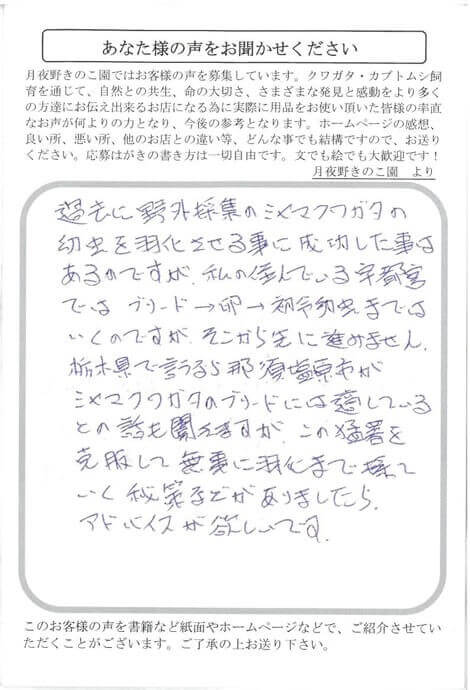 あなた様の声をお聞かせください
月夜野きのこ園ではお客様の声を募集しています。クワガタ・カブトムシ飼
育を通じて、自然との共生、命の大切さ、さまざまな発見と感動をより多く
の方達にお伝え出来るお店になる為に実際に用品をお使い頂いた皆様の率直
なお声が何よりの力となり、今後の参考となります。ホームページの感想、
良い所、悪い所、他のお店との違い等、どんな事でも結構ですので、お送り
ください。応募はがきの書き方は一切自由です。文でも絵でも大歓迎です！
月夜野きのこ園 より
過去に野外採集のミヤマクワガタの
幼虫を羽化させる事に成功した事は
あるのですが、私の住んでいる宇都宮
では ブリード→卵→初令幼虫までは
いくのですが、そこから先に進みません。
栃木県で言うなら那須塩原市が
ミヤマクワガタのブリードには適している
との話も聞きますが、この猛暑を
克服して無事に羽化まで持って
いく秘策などがありましたら、
アドバイスが欲しいです。
このお客様の声を書籍など紙面やホームページなどで、ご紹介させてい
ただくことがございます。ご了承の上お送り下さい。